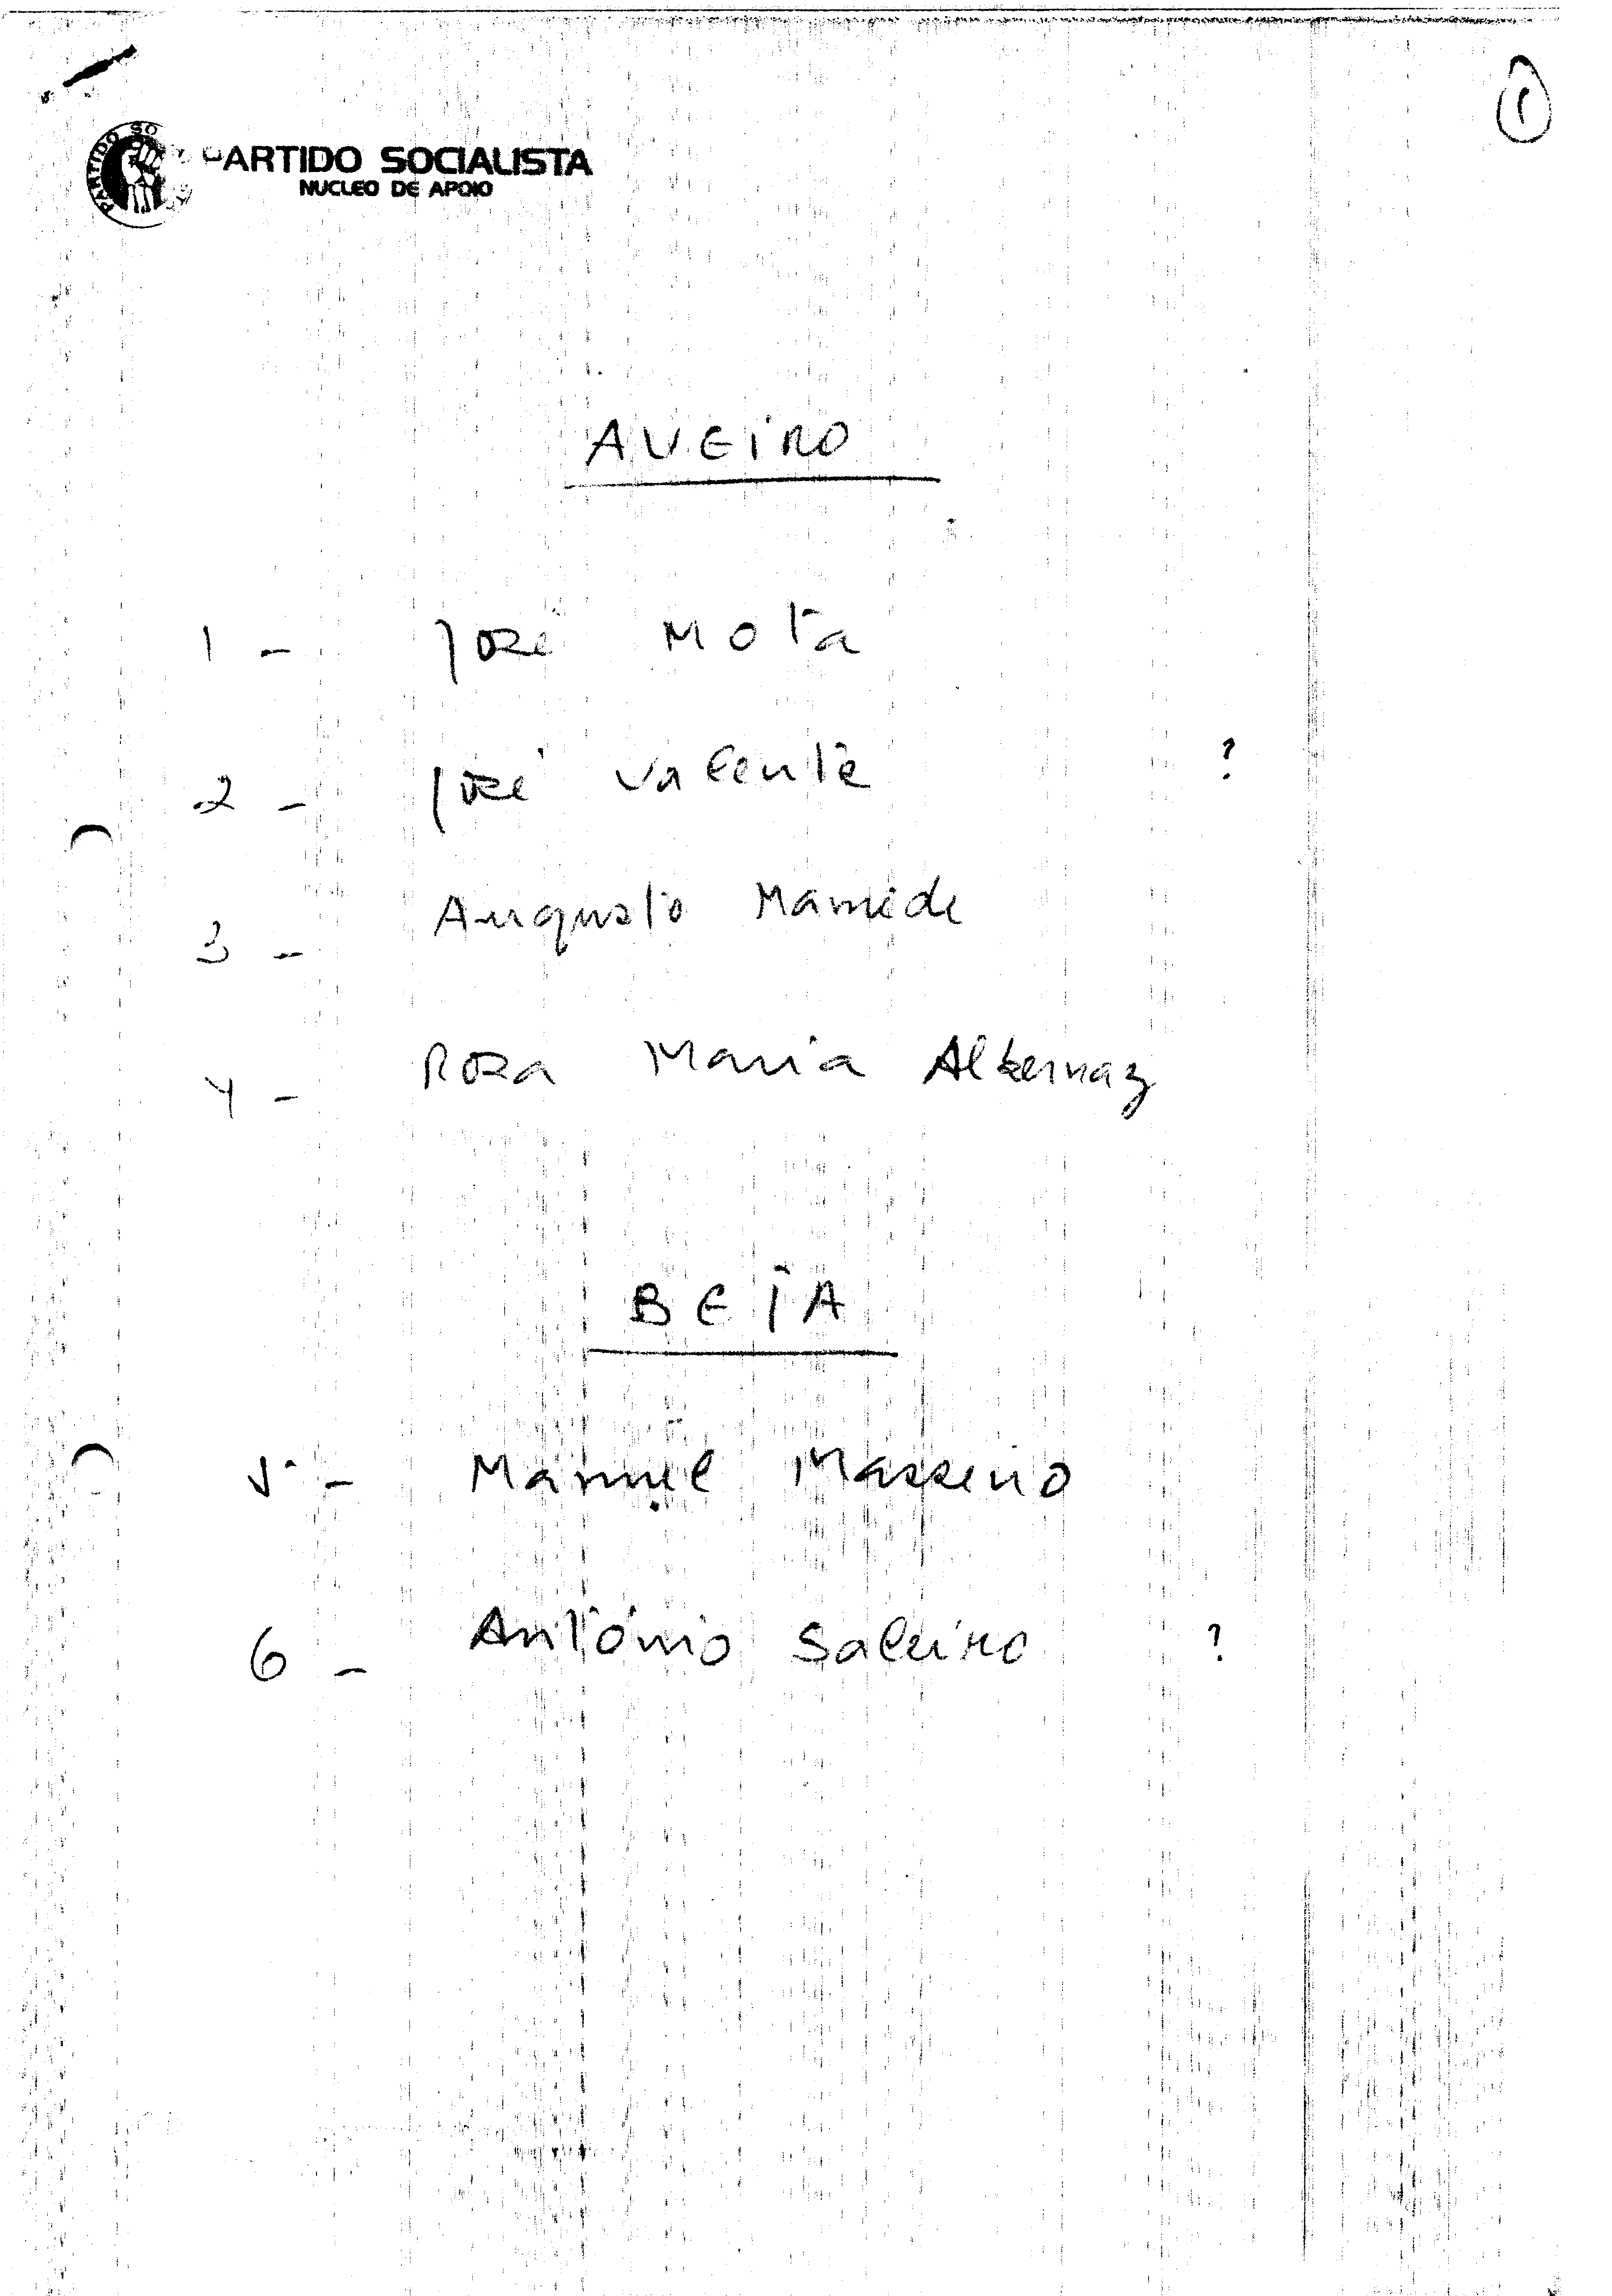 1
PARTIDO SO
PARTIDO SOCIALISTA
NUCLEO DE APOIO
AVEIRO
1 - José Mota
2 - José Valente ?
3 - Augusto Mamede
4 - Rosa Maria Albernaz
BEJA
5 - Manuel Masseno
6 - António Saleiro ?